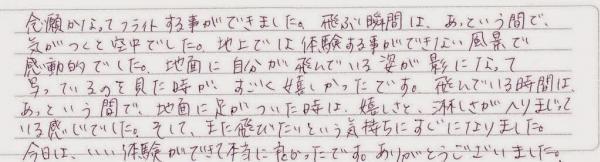 念願かなってフライトする事ができました。飛ぶ瞬間は、あっという間で、
気がつくと空中でした。地上では体験する事ができない風景で
感動的でした。地面に自分が飛んでいる姿が影になって
写っているのを見た時が、すごく嬉しかったです。飛んでいる時間は、
あっという間で、地面に足がついた時は、嬉しさと、淋しさが入りまじって
いる感じでした。そして、また飛びたいという気持ちにすぐになりました。
今日は、いい体験ができて本当に良かったです。ありがとうございました。